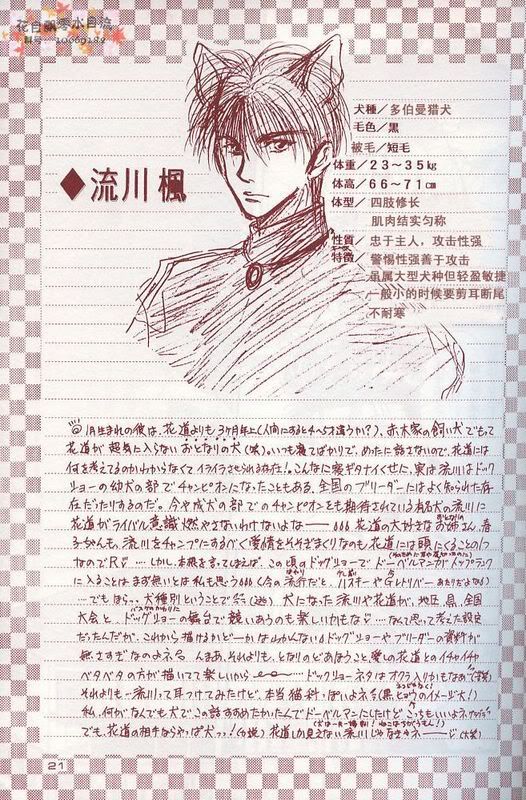 花自飘零水自流
犬種／多伯曼猎犬
毛色／黒
被毛／短毛
体重／23～35kg
体高／66～71cm
体型／四肢修长
肌肉结实匀称
性質／忠于主人，攻击性强
特徴／警惕性强善于攻击
虽属大型犬种但轻盈敏捷
一般小的时候要剪耳断尾
不耐寒
◆流川楓
1月生まれの彼は、花道よりも3ヶ月年上(人間にすると 違うか?)、赤木家の飼い犬でもって
花道が超気に入らないおとなりの犬(笑)。いつも寝てばかりで、めったに話さないので、花道には
何を考えてるのかわからなくてイライラさせられる存在!こんなに寝ギタナイくせに、実は流川はドッグ
ショーの幼犬の部でチャンピオンになったこともある、全国のブリーダーにはよく知られた存
在だったりするのだ。今や成犬の部でのチャンピオンをも期待されている名犬の流川に
花道がライバル意識燃やさないわけないよな――花道の大好きなお姉さん、春
子ちゃんも、流川をチャンプにするべく愛情をそそぎまくりなのも花道には頭にくることの1つ
なので尸 …しかし、本根を言ってしまえば、この頃のドッグショーでドーベルマンがトップランク
に入ることはまず無いとは私も思う(今の流行だと、ハスキーやG・レトリバーあたりだよなる)
…でもほら、犬種別ということで (逃) 犬になった流川や花道が、地区、県、全国
大会と、ドッグショーの舞台で競いあうのも楽しいかもなな…なんて思って考えた設定
だったんだが、これから描けるかどーかはわかんない(ドッグショーやブリーダーの資料が
無さすぎなのよネ)。んまあ、それよりも、となりのどあほうこと愛しの花道とのイチャイチャ
ベタベタの方が描いてて楽しいから……ドッグショーネタはオクラ入りかもなので(苦笑)
それよりも…流川って耳つけてみたけど、本当 猫科っぽいよネ(黒ヒョウのイメージ大!)
私、何がなんでも犬でこの話すすめたかったんでドーベルマンにしたけど
でも、花道の相手ならやっぱ犬っ!(力説)花道しか見えない流川じゃなきゃネ――(大笑)
21